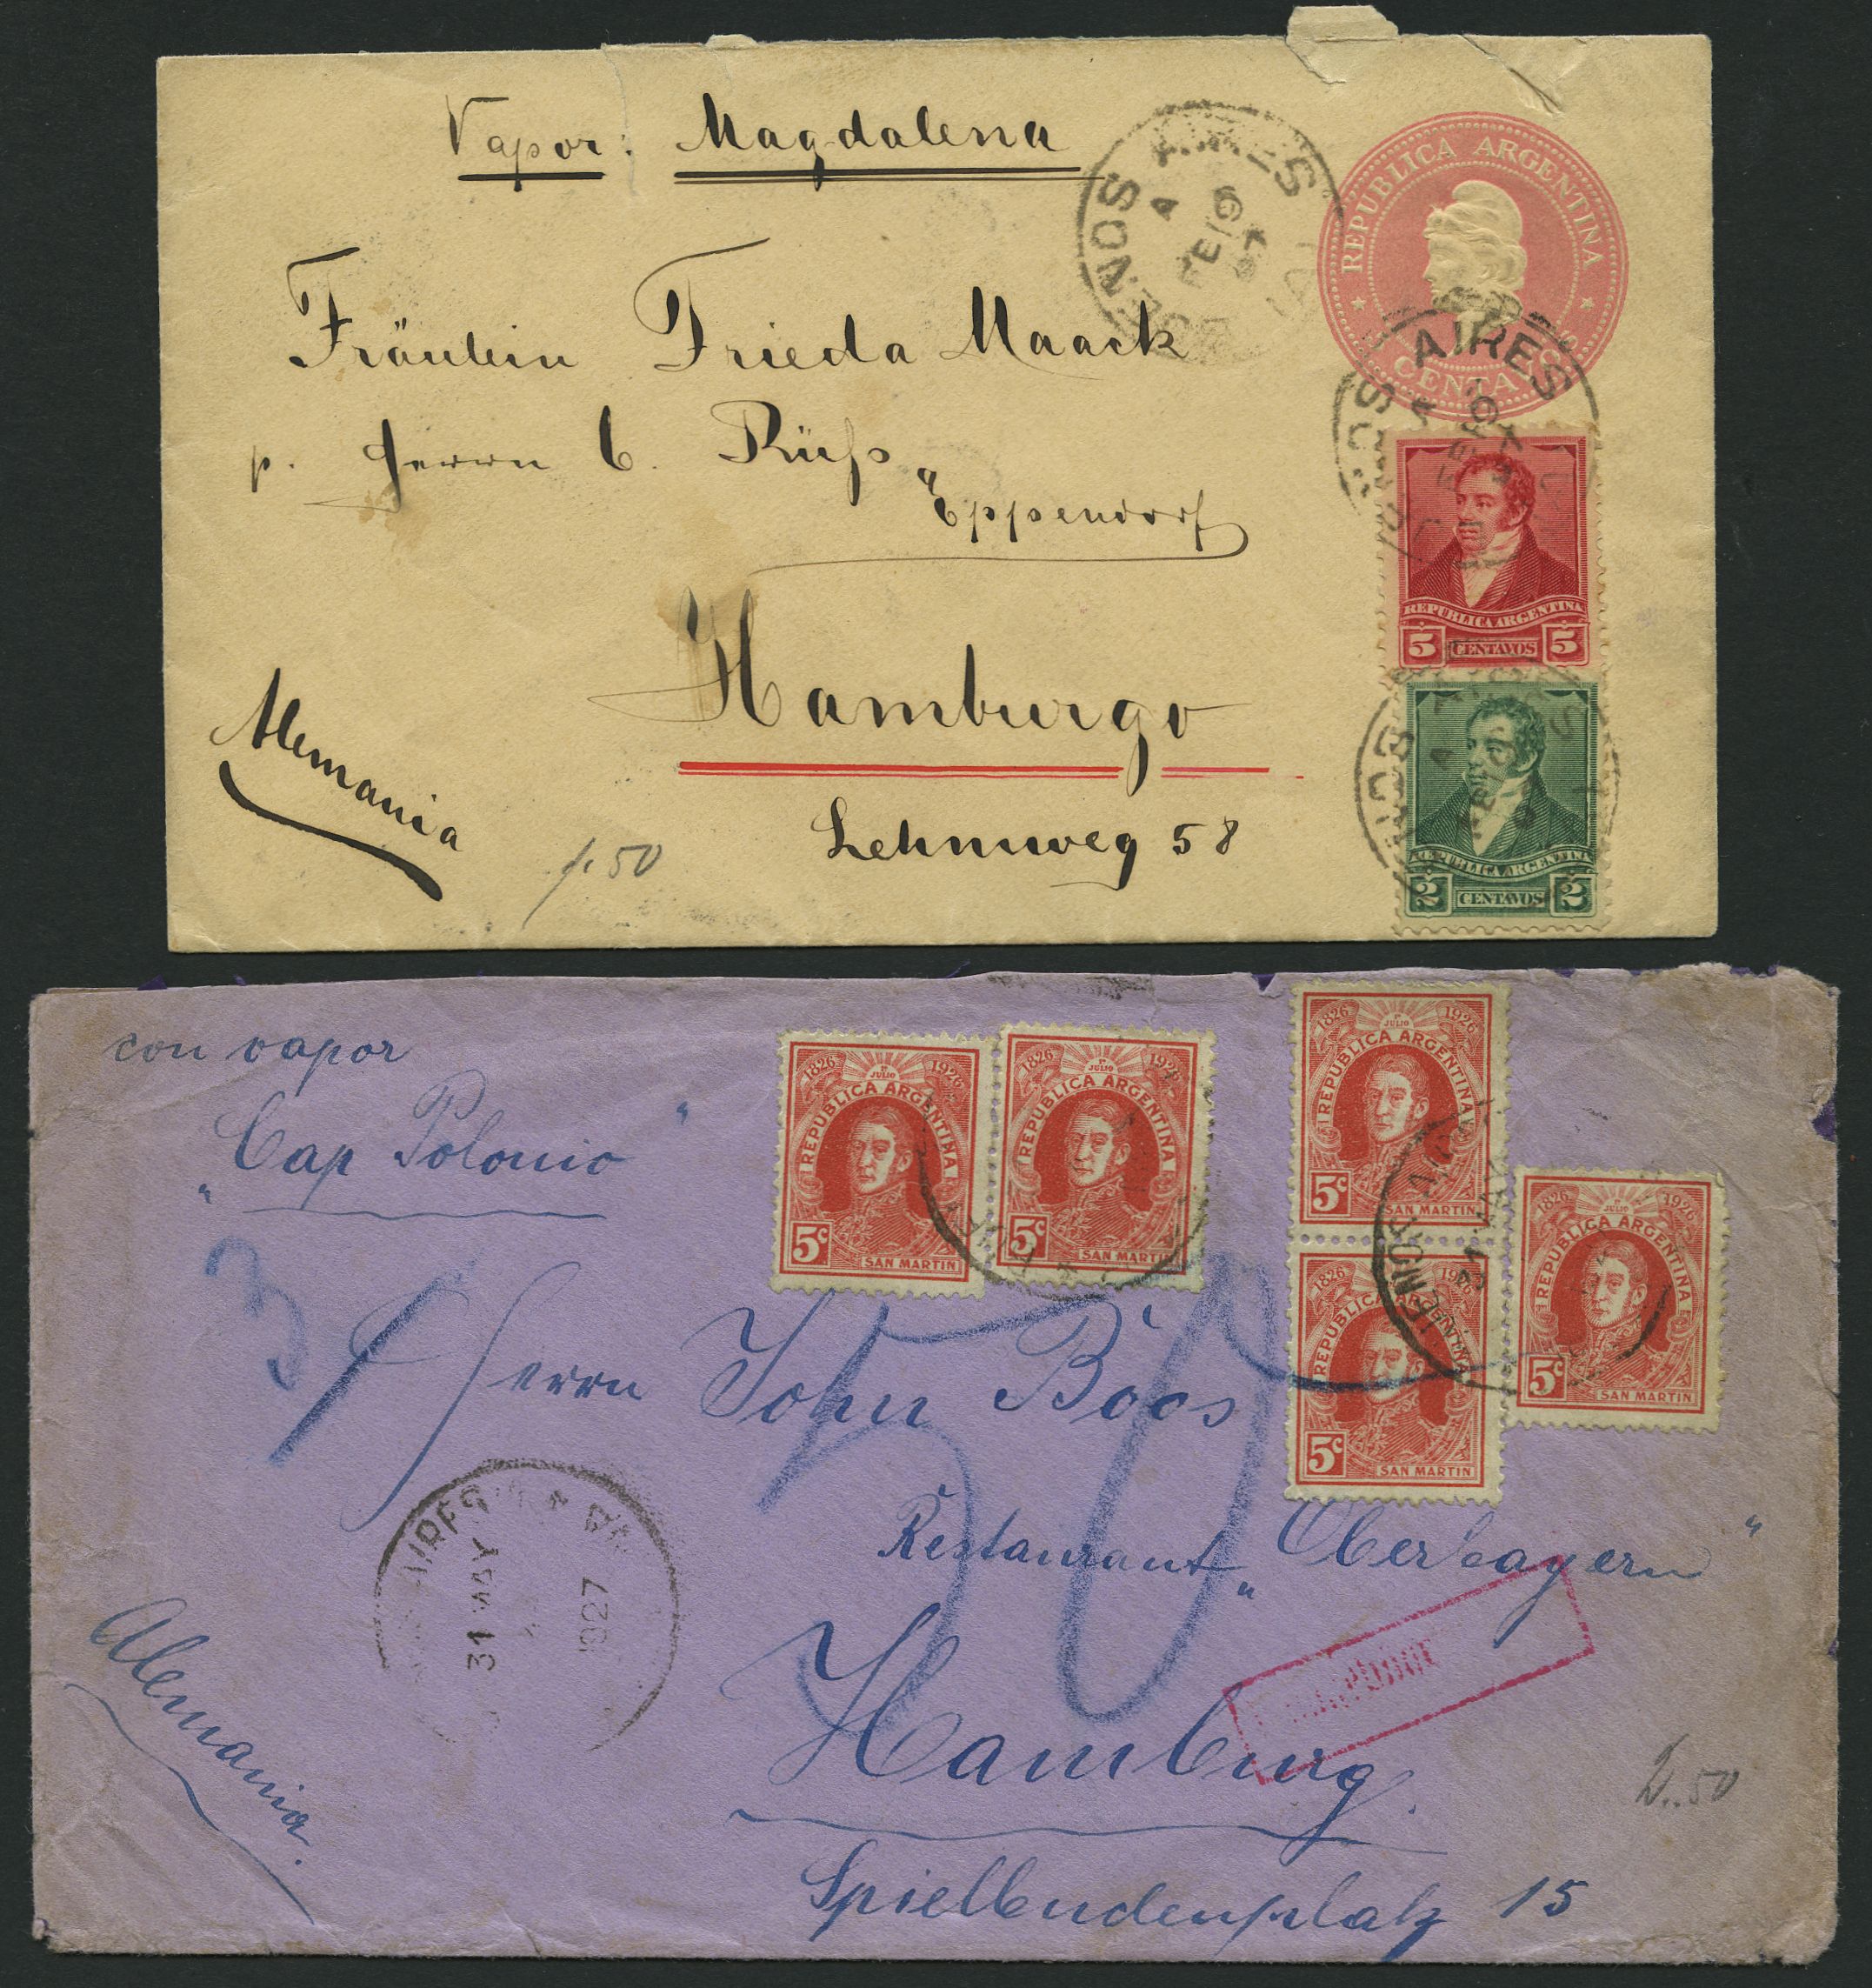 Vapor: Magdalena
BUENOS AIRES
A
FE 9
97
REPUBLICA ARGENTINA
CENTAVOS
Fräulein Frieda Maack
p. Herrn C. Rüß
"Eppendorf
Hamburgo
Lehmweg 58
Alemania
AIRES
A
REPUBLICA ARGENTINA
5 CENTAVOS 5
REPUBLICA ARGENTINA
2 CENTAVOS 2
con vapor
"Cap Polonio"
1826 1º JULIO 1926
REPUBLICA ARGENTINA
5c SAN MARTIN
1826 1º JULIO 1926
REPUBLICA ARGENTINA
5c SAN MARTIN
1826 1º JULIO 1926
REPUBLICA ARGENTINA
5c SAN MARTIN
1826 1926
REPUBLICA ARGENTINA
5c SAN MARTIN
1826 JULIO 1926
REPUBLICA ARGENTINA
5c SAN MARTIN
50
Herrn John Böos
Restaurant "Oberbayern"
Hamburg.
Spielbudenplatz 15
Alemania.
AIRES
31 MAY
1927